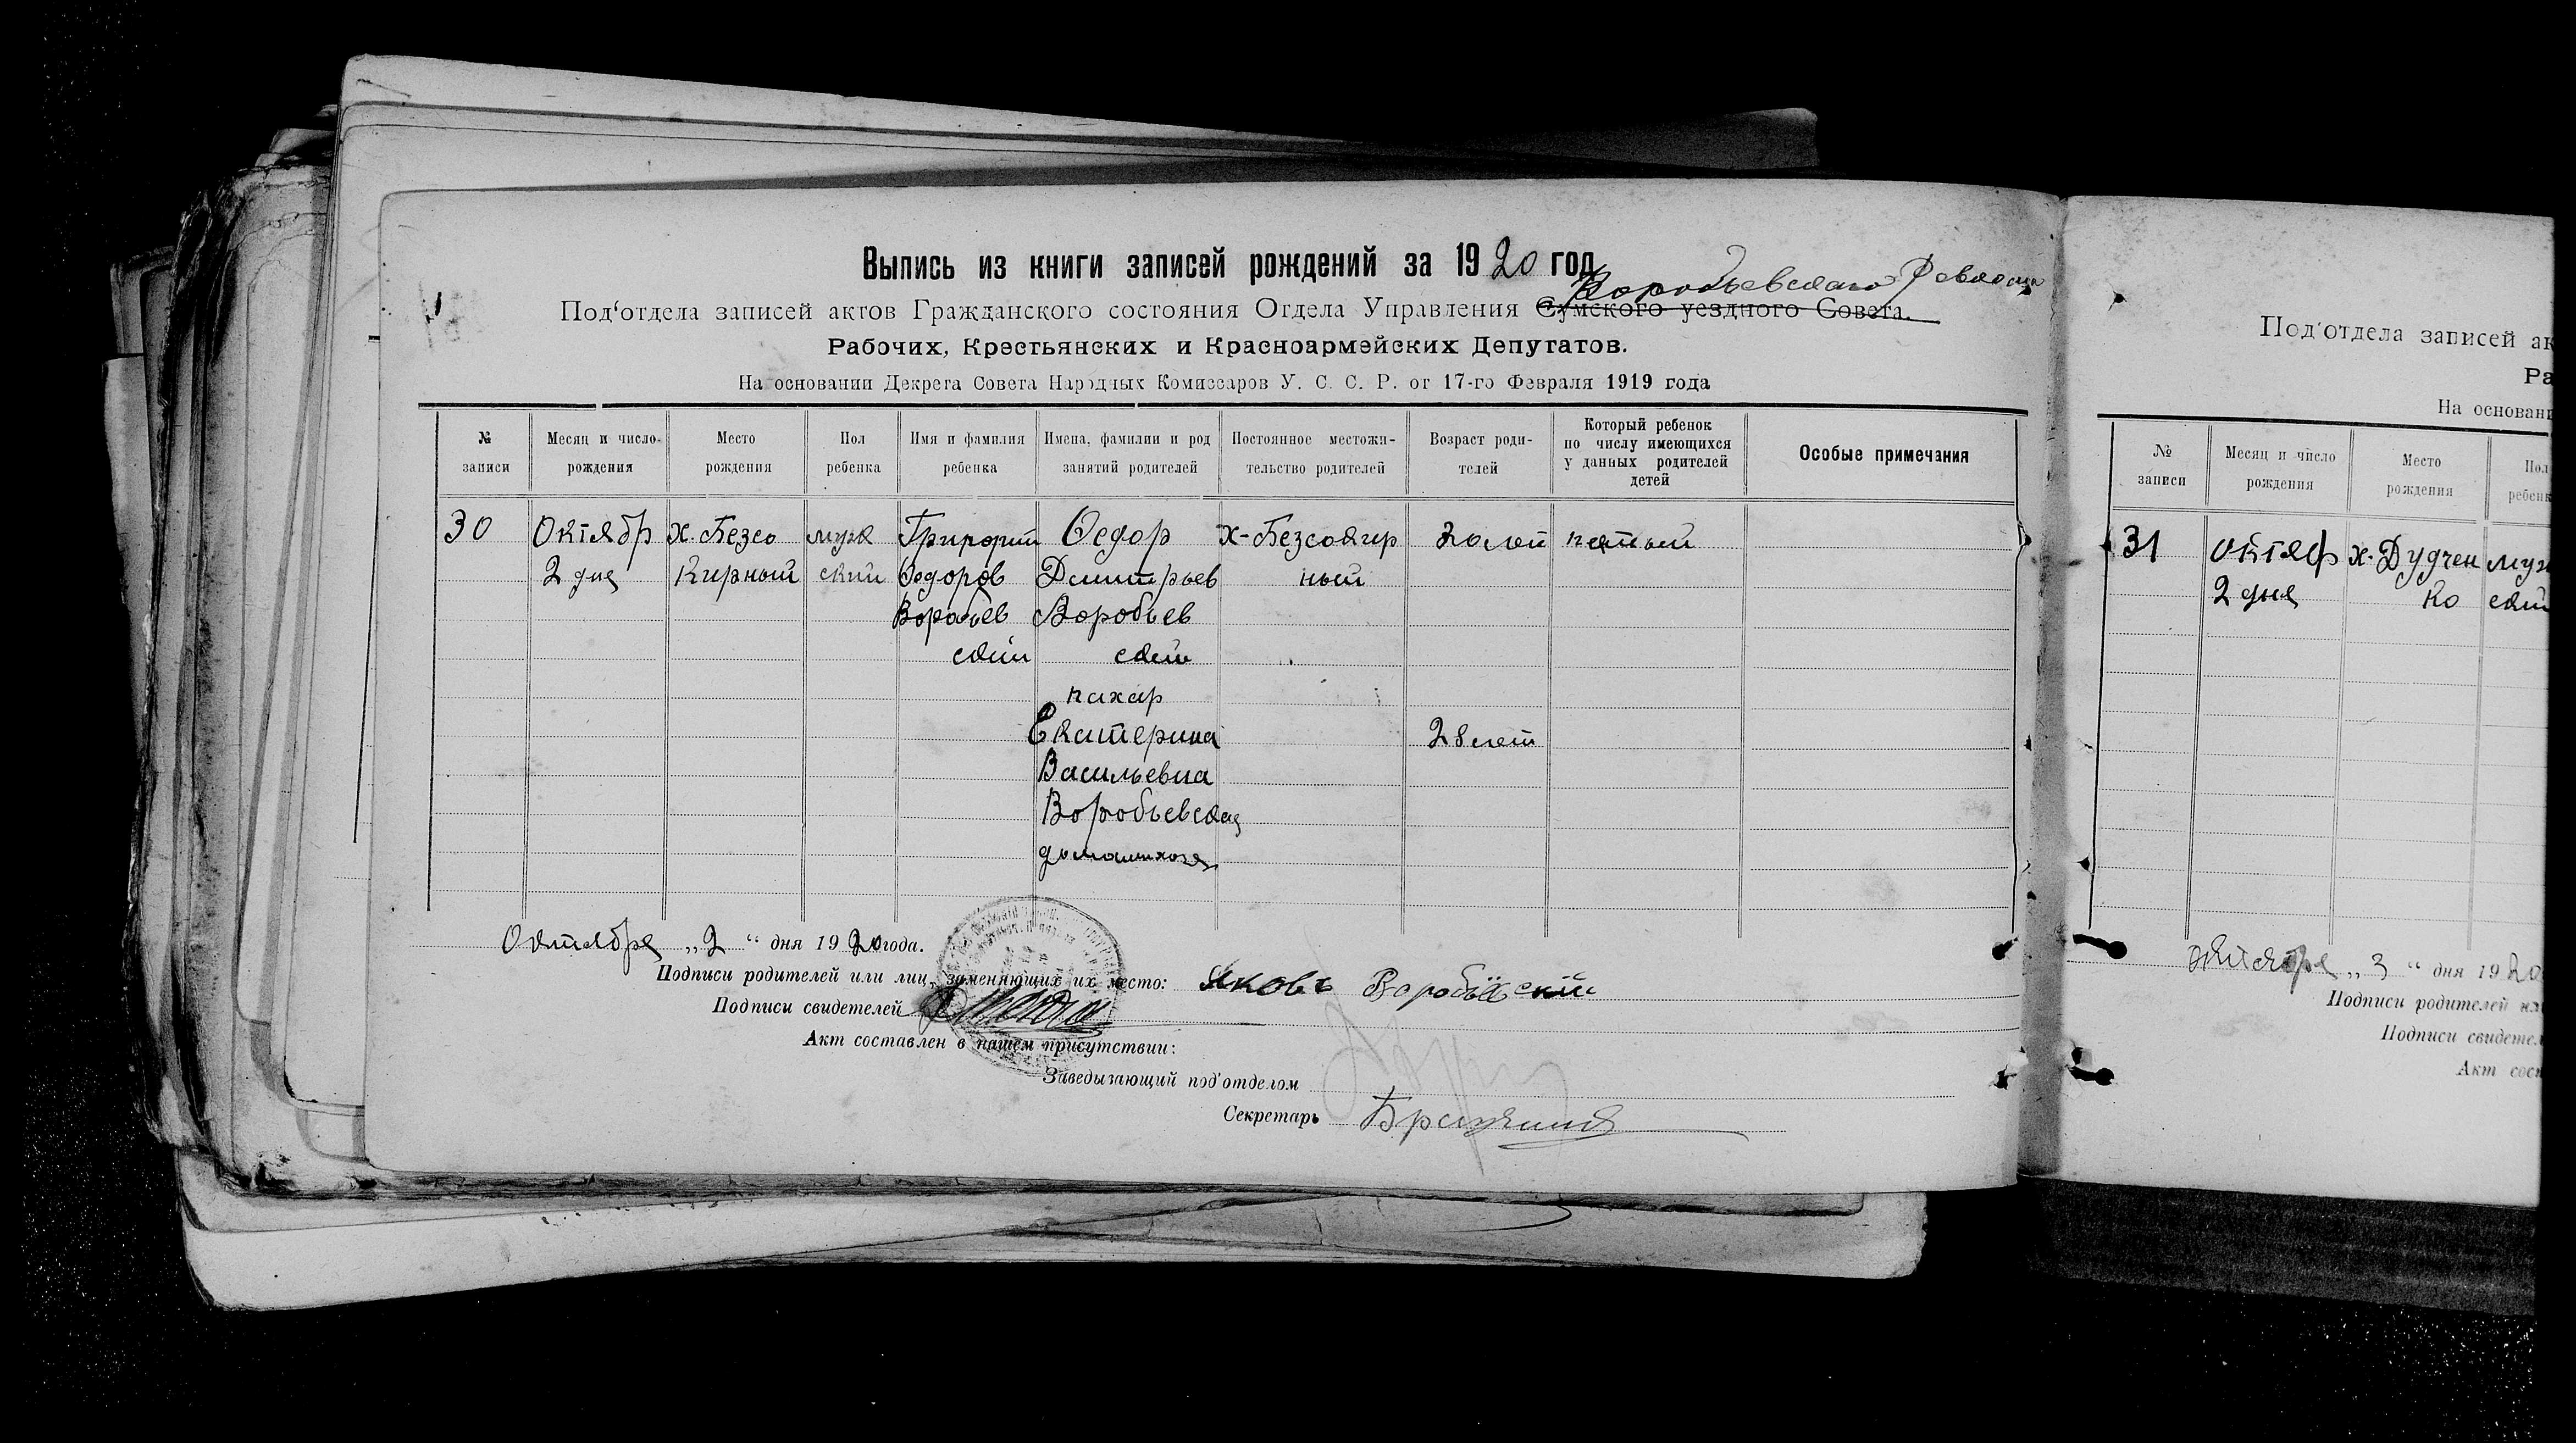 Выпись из книги записей рождений за 1920 год
Воробьевского Ревкома
Под'отдела записей актов Гражданского состояния Отдела Управления Сумского уездного Совета.
Рабочих, Крестьянских и Красноармейских Депутатов.
На основании Декрета Совета Народных Комиссаров У. С. С. Р. от 17-го Февраля 1919 года
№ записи
Месяц и число рождения
Место рождения
Пол ребенка
Имя и фамилия ребенка
Имена, фамилии и род занятий родителей
Постоянное местожительство родителей
Возраст родителей
Который ребенок по числу имеющихся у данных родителей детей
Особые примечания
30 Октябр х. Безсо муж Григорий Федор х-Безсокир 30 лет пятый
2 дня Кирный ский Федоров Дмитрьев ный
Воробьев Воробьев
ский ский
пахар
Екатерина 28 лет
Васильевна
Воробьевская
домашхоз
Октября „2“ дня 1920 года.
Подписи родителей или лиц, заменяющих их место: Яковъ Воробьйский
Подписи свидетелей
Акт составлен в нашем присутствии:
Заведывающий под'отделом
Секретарь
Под'отдела записей ак
Ра
На основани
№ записи
Месяц и число рождения
Место рождения
Пол ребенк
31 Октяб х. Дудчен муж
2 дня ко ский
Октября „3“ дня 1920
Подписи родителей ил
Подписи свидетел
Акт сост